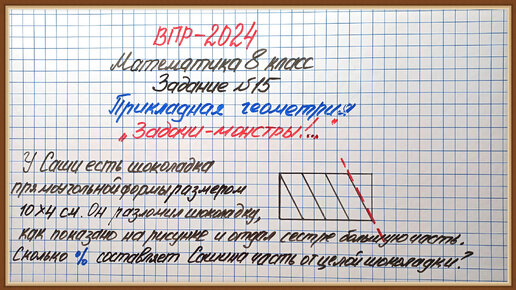 ВПР-2024
Математика 8 класс
Задание №15
Прикладная геометрия
„Задачи-монстры!..."
У Саши есть шоколадка
прямоугольной формы размером
10×4 см. Он разломил шоколадку,
как показано на рисунке и отдал сестре большую часть.
Сколько % составляет Сашина часть от целой шоколадки?